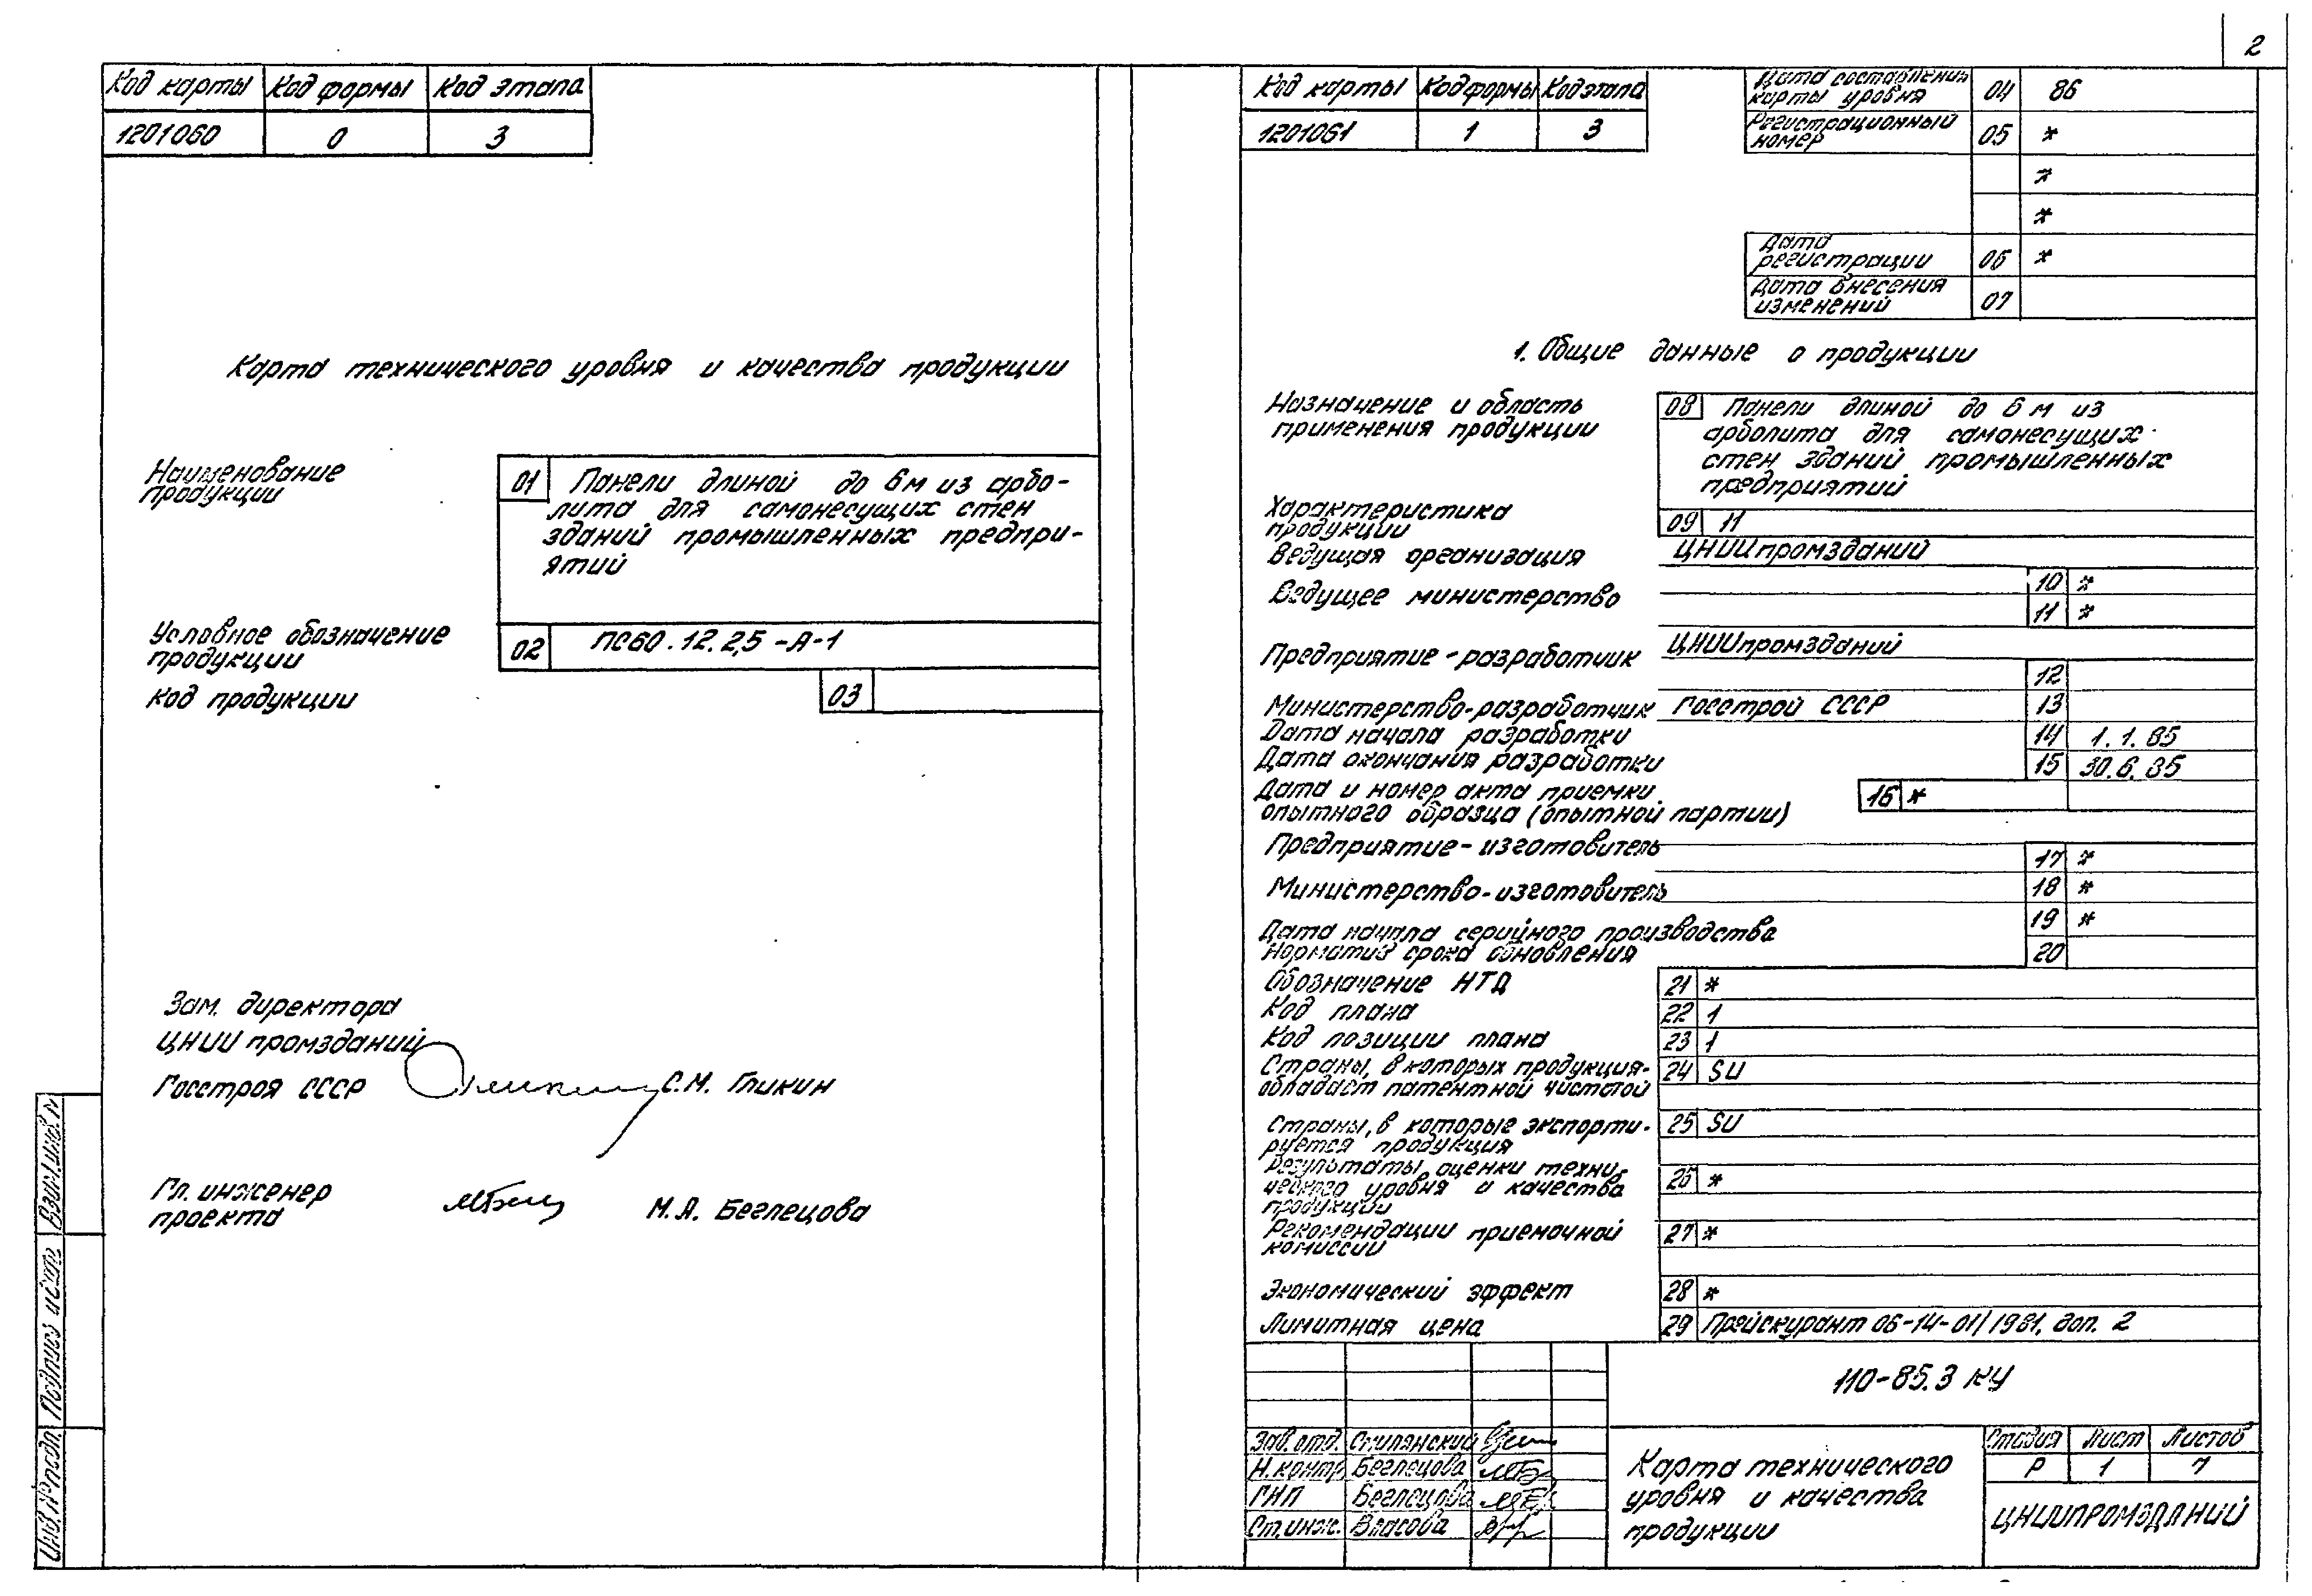 2
Код карты Код формы Код этапа
1201060 0 3
Карта технического уровня и качества продукции
Наименование
продукции
01 Панели длиной до 6м из арбо-
лита для самонесущих стен
зданий промышленных предпри-
ятий
Условное обозначение
продукции
02 ПС60.12.2,5-А-1
Код продукции 03
Зам. директора
ЦНИИ промзданий
Госстроя СССР С.М. Гликин
Гл. инженер
проекта
М.А. Беглецова
Взам.инв.№
Подпись и дата
Инв.№подл.
Код карты Код формы Код этапа
1201061 1 3
Дата составления
карты уровня 04 86
Регистрационный
номер 05 *
*
*
Дата
регистрации 06 *
Дата внесения
изменений 07
1. Общие данные о продукции
Назначение и область
применения продукции
08 Панели длиной до 6 м из
арболита для самонесущих
стен зданий промышленных
предприятий
Характеристика
продукции
09 11
Ведущая организация ЦНИИпромзданий
10 *
Ведущее министерство
11 *
Предприятие-разработчик ЦНИИпромзданий
12
Министерство-разработчик Госстрой СССР 13
Дата начала разработки 14 1.1.85
Дата окончания разработки 15 30.6.85
Дата и номер акта приемки
опытного образца (опытной партии) 16 *
Предприятие-изготовитель 17 *
Министерство-изготовитель 18 *
Дата начала серийного производства 19 *
Норматив срока обновления 20
Обозначение НТД 21 *
Код плана 22 1
Код позиции плана 23 1
Страны, в которых продукция
обладает патентной чистотой 24 SU
Страны, в которые экспорти-
руется продукция 25 SU
Результаты оценки техни-
ческого уровня и качества
продукции 26 *
Рекомендации приемочной
комиссии 27 *
Экономический эффект 28 *
Лимитная цена 29 Прейскурант 06-14-01/1981, доп. 2
110-85.3 КУ
Зав.отд. Смилянский
Н.контр. Беглецова
ГИП Беглецова
Ст.инж. Власова
Карта технического
уровня и качества
продукции
Стадия Лист Листов
Р 1 7
ЦНИИПРОМЗДАНИЙ